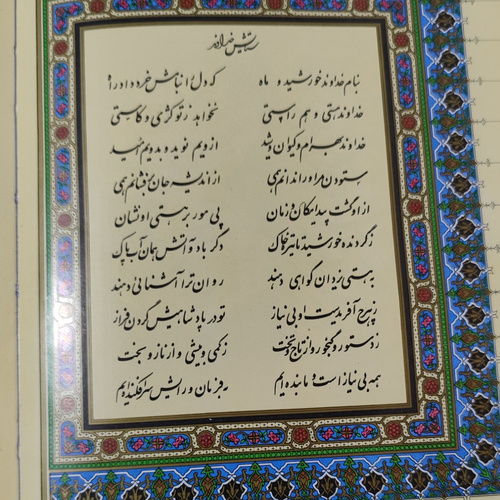 ستایش خداوند
بنام خداوند خورشید و ماه که دل را بنامش خرد داد راه
خداوند هستی و هم راستی نخواهد ز تو کژی و کاستی
خداوند بهرام و کیوان و شید ازویم نوید و بدویم امید
ستودن مر او را ندانم همی از اندیشه جان برفشانم همی
ازو گشت پیدا مکان و زمان پی مور بر هستی او نشان
ز گردنده خورشید تا تیره خاک دگر باد و آتش همان آب پاک
به هستی یزدان گواهی دهند روان ترا آشنایی دهند
ز هرچ آفریدست او بی نیاز تو در پادشاهیش گردن فراز
ز دستور و گنجور و از تاج و تخت ز کمی و بیشی و از ناز و بخت
همه بی نیاز است و ما بنده ایم به فرمان و رایش سرافکنده ایم